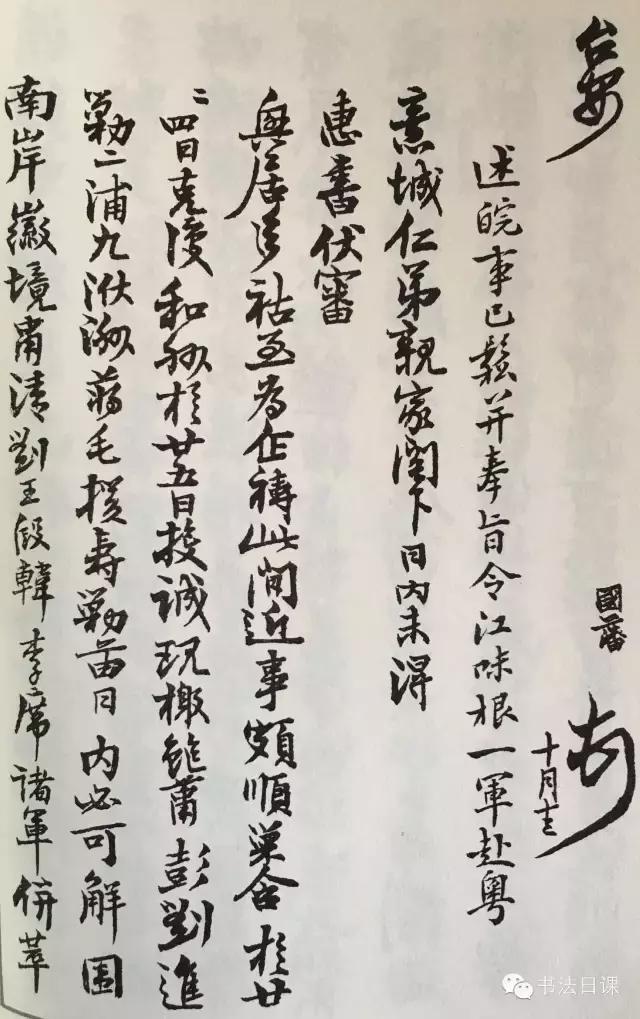 台安
國藩 頓
十月十三
述皖事已鬆并奉旨令江味根一軍赴粵
意城仁弟親家閣下日內未得
惠書伏審
興居多祜至為企禱此間近事頗順巢含於廿
二四日克復和於廿五日投誠現檄鮑蕭彭劉進
勦二浦九洑洲蔣毛援壽勦苗日內必可解圍
南岸徽境肅清劉王段韓李席諸軍併萃
书法日课